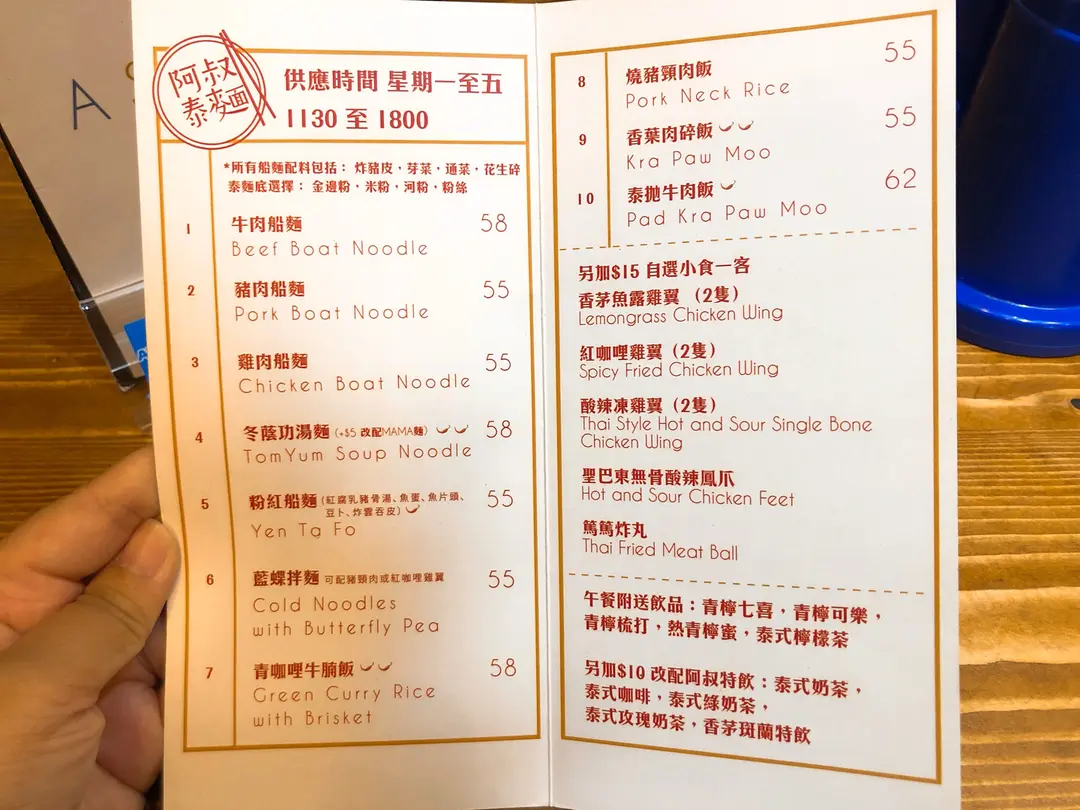 A
阿叔
泰麵
供應時間 星期一至五
1130 至 1800
*所有船麵配料包括： 炸豬皮，芽菜，通菜，花生碎
泰麵底選擇： 金邊粉，米粉，河粉，粉絲
1 牛肉船麵 58
Beef Boat Noodle
2 豬肉船麵 55
Pork Boat Noodle
3 雞肉船麵 55
Chicken Boat Noodle
4 冬蔭功湯麵 (+$5 改配MAMA麵) 58
TomYum Soup Noodle
5 粉紅船麵 (紅腐乳豬骨湯、魚蛋、魚片頭、 55
豆卜、炸雲吞皮)
Yen Ta Fo
6 藍蝶拌麵 可配豬頸肉或紅咖哩雞翼 55
Cold Noodles
with Butterfly Pea
7 青咖哩牛腩飯 58
Green Curry Rice
with Brisket
8 燒豬頸肉飯 55
Pork Neck Rice
9 香葉肉碎飯 55
Kra Paw Moo
10 泰拋牛肉飯 62
Pad Kra Paw Moo
另加$15 自選小食一客
香茅魚露雞翼 （2隻）
Lemongrass Chicken Wing
紅咖哩雞翼（2隻）
Spicy Fried Chicken Wing
酸辣凍雞翼（2隻）
Thai Style Hot and Sour Single Bone
Chicken Wing
聖巴東無骨酸辣鳳爪
Hot and Sour Chicken Feet
篤篤炸丸
Thai Fried Meat Ball
午餐附送飲品：青檸七喜，青檸可樂，
青檸梳打，熱青檸蜜，泰式檸檬茶
另加$10 改配阿叔特飲：泰式奶茶，
泰式咖啡，泰式綠奶茶，
泰式玫瑰奶茶，香茅斑蘭特飲